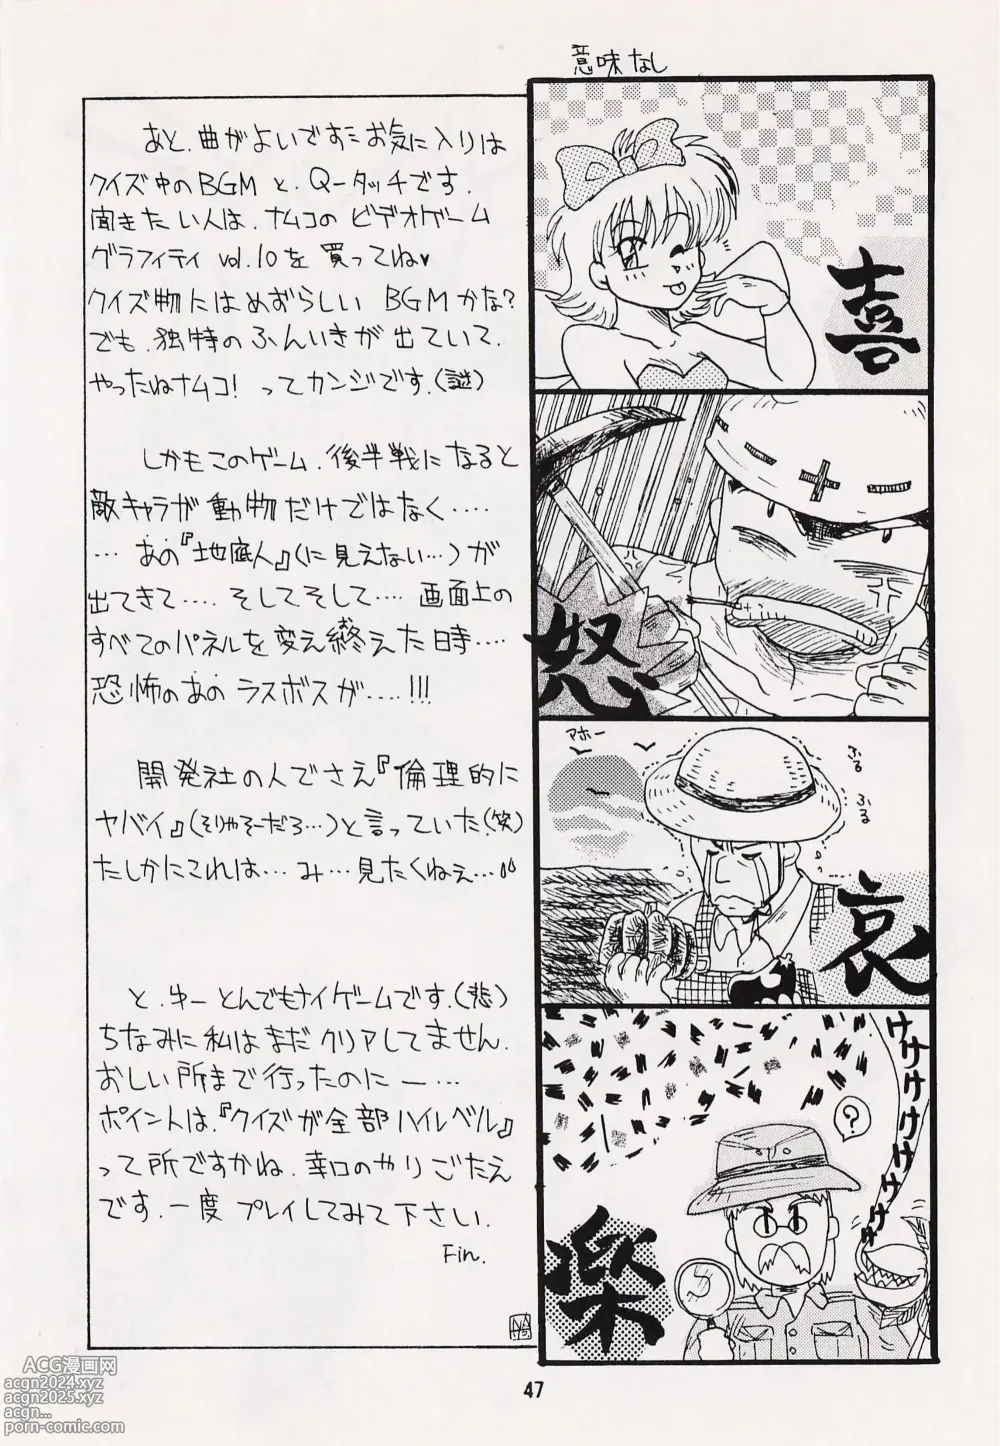 意味なし
あと、曲がよいですネ お気に入りは
クイズ中のBGM と、Q-タッチです。
聞きたい人は、ナムコのビデオゲーム
グラフィティ vol.10を 買ってね♥
クイズ物にはめずらしい BGMかな?
でも、独特のふんいきが 出ていて、
やったねナムコ! ってカンジです。(謎)
しかもこのゲーム、後半戦になると
敵キャラが 動物だけではなく……
…あの『地底人』(に見えない…)が
出てきて…… そしてそして…… 画面上の
すべてのパネルを 変え終えた時……
恐怖のあの ラスボスが……!!!
開発社の人でさえ『倫理的に
ヤバイ』(そりゃそーだろ…)と言っていた(笑)
たしかにこれは… み…見たくねぇ…
と、まー とんでもナイゲームです。(悲)
ちなみに 私はまだ クリアしてません。
おしい所まで 行ったのに ー…
ポイントは、『クイズが全部ハイレベル』
って所ですかね。辛口のやりごたえ
です。一度 プレイしてみて下さい。
Fin.
喜
怒
アホー
ぶる
ぶる
哀
ケケケケケケケケ
?
楽
47
ACG漫画网
acgn2024.xyz
acgn2025.xyz
acgn...
porn-comic.com